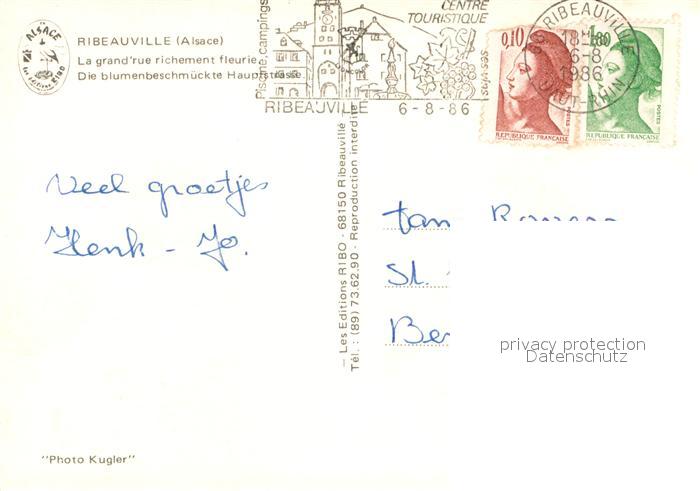 ALSACE
RIBEAUVILLE (Alsace)
La grand'rue richement fleurie
Die blumenbeschmückte Hauptstrasse
Piscine, campings
CENTRE
TOURISTIQUE
RIBEAUVILLÉ 6-8-86
0,10
REPUBLIQUE FRANÇAISE
POSTES
1,80
REPUBLIQUE FRANÇAISE
POSTES
RIBEAUVILLE
18H
6-8
1986
HAUT-RHIN
Veel groetjes
Henk - Jo.
— Les Editions RIBO - 68150 Ribeauvillé
Tél. : (89) 73.62.90 - Reproduction interdite
St.
privacy protection
Datenschutz
"Photo Kugler"